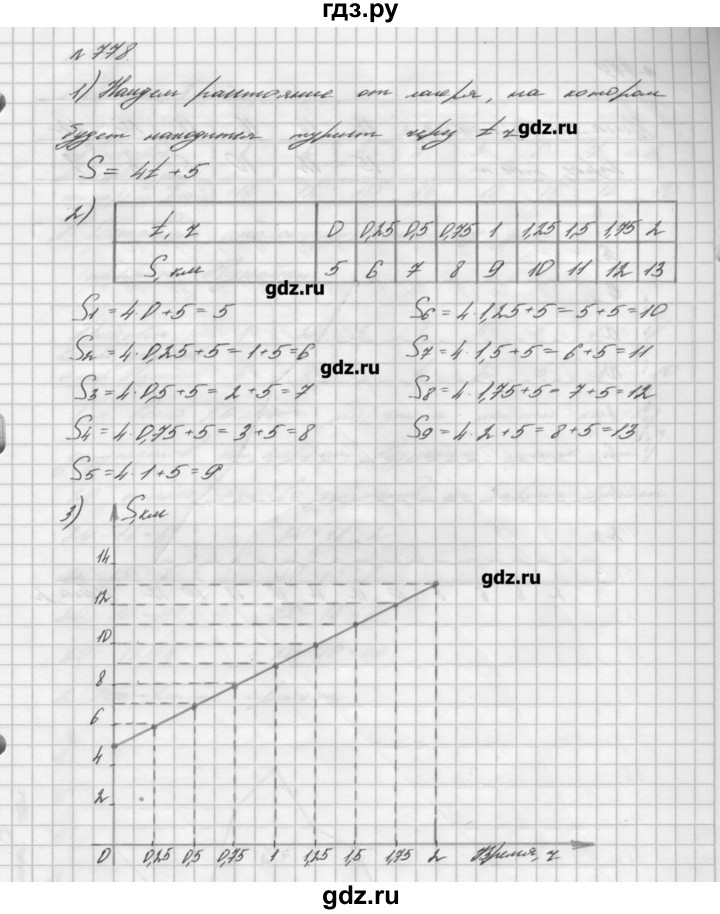 гдз.ру
№ 778.
1) Найдем расстояние от лагеря, на котором
будет находиться турист через t ч gdz.ru
S = 4t + 5
2)
t, ч 0 0,25 0,5 0,75 1 1,25 1,5 1,75 2
S, км 5 6 7 8 9 10 11 12 13
gdz.ru
S1 = 4·0+5 = 5 S6 = 4·1,25+5 = 5+5=10
S2 = 4·0,25+5 = 1+5=6 S7 = 4·1,5+5 = 6+5=11
gdz.ru
S3 = 4·0,5+5 = 2+5=7 S8 = 4·1,75+5 = 7+5=12
S4 = 4·0,75+5 = 3+5=8 S9 = 4·2+5 = 8+5=13
S5 = 4·1+5 = 9
3) S, км
14
gdz.ru
12
10
8
6
4
2
0 0,25 0,5 0,75 1 1,25 1,5 1,75 2 Время, ч
gdz.ru